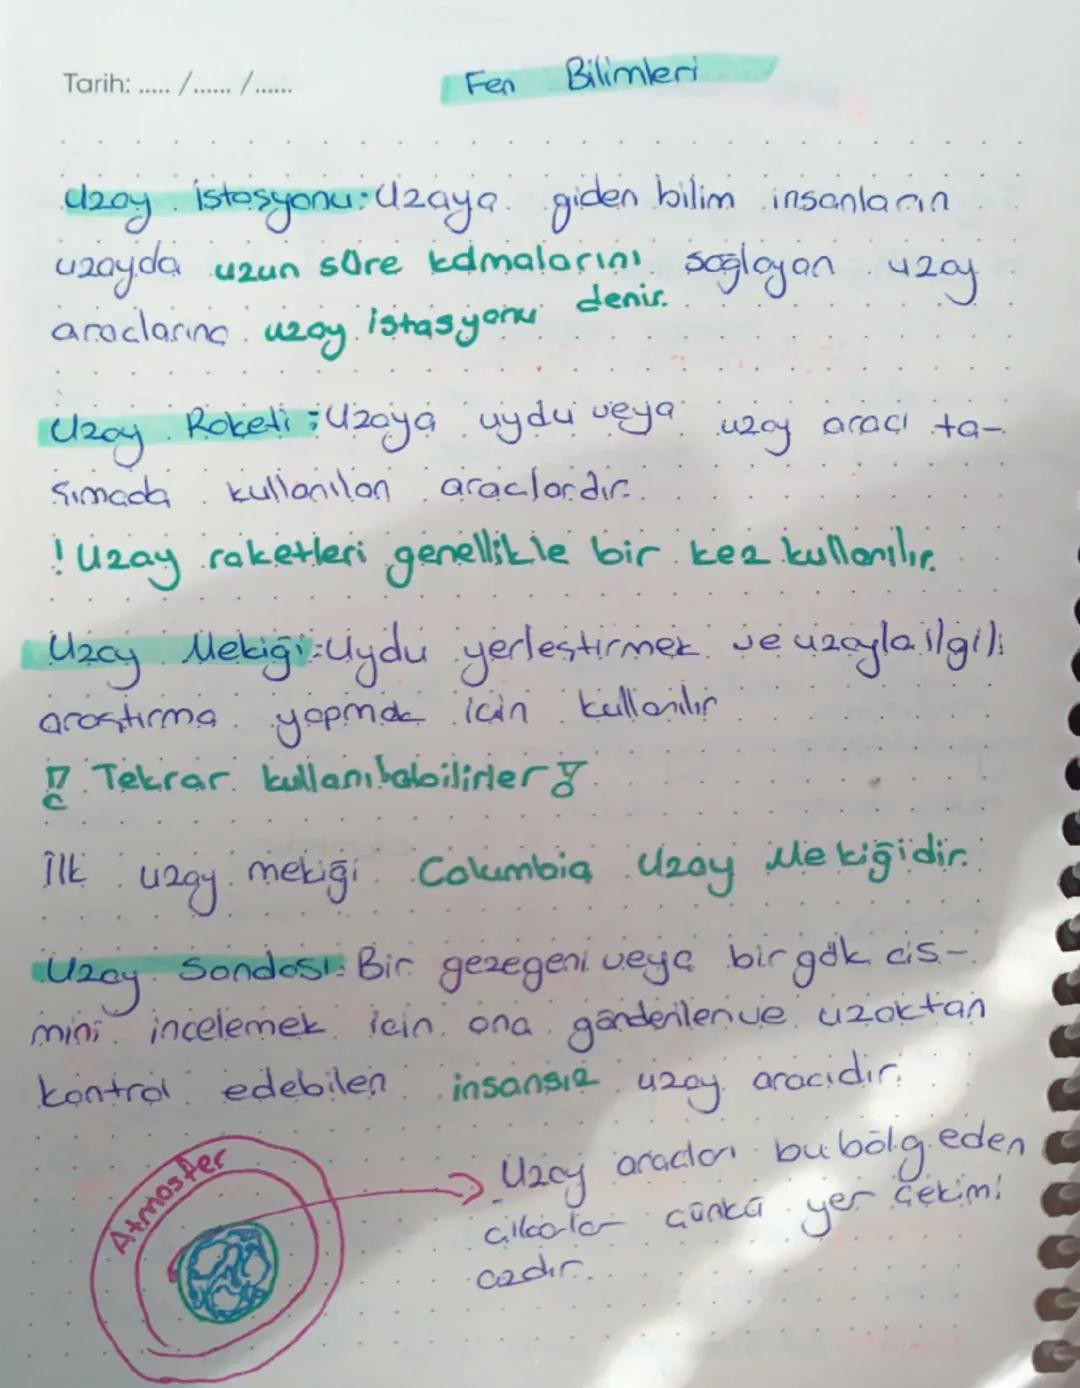 Tarih: ..... /...... /......
Fen Bilimleri
Uzay istasyonu: Uzaya giden bilim insanların
uzayda uzun süre kalmalarını sağlayan uzay
araclarına uzay istasyonu denir.
Uzay Roketi: Uzaya uydu veya uzay aracı ta-
şımada kullanılan araclardır.
! Uzay roketleri genellikle bir kez kullanılır.
Uzay Mekiği: Uydu yerleştirmek ve uzayla ilgili
araştırma yapmak için kullanılır
! Tekrar kullanılabilirler !
İlk uzay mekiği Columbia Uzay Mekiğidir.
Uzay Sondası: Bir gezegeni veya bir gök cis-
mini incelemek için ona gönderilen ve uzaktan
kontrol edebilen insansız uzay aracıdır.
Atmosfer
Uzay aracları bu bölg.eden
çıkarlar çünkü yer çekimi
azdır.